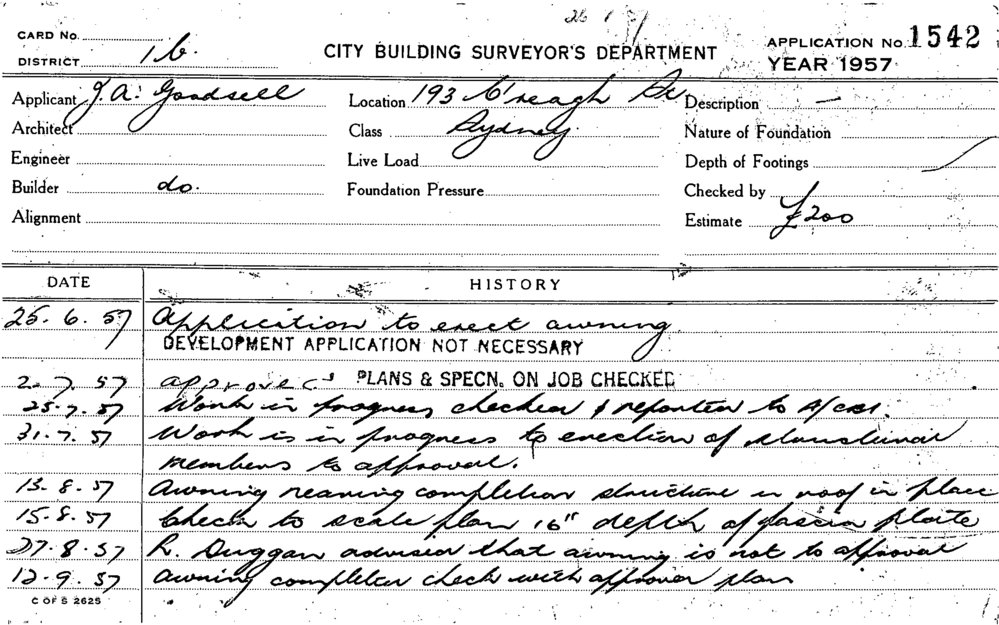 CARD No.
DISTRICT 16.
CITY BUILDING SURVEYOR'S DEPARTMENT
APPLICATION No. 1542
YEAR 1957
Applicant J. A. Goodsell
Architect
Engineer
Builder do.
Alignment
Location 193 C'reagh St.
Class Sydney.
Live Load
Foundation Pressure
Description —
Nature of Foundation
Depth of Footings
Checked by
Estimate £200
DATE HISTORY
25. 6. 57 Application to erect awning
DEVELOPMENT APPLICATION NOT NECESSARY
2. 7. 57 approved PLANS & SPECN. ON JOB CHECKED
25. 7. 57 Work in progress checked & reported to
31. 7. 57 Work is in progress to erection of structural
members to approval.
13. 8. 57 Awning nearing completion structure in roof in place
15. 8. 57 Check to scale plan 16" depth of fascia plate
27. 8. 57 R. Duggan advised that awning is not to approval
12. 9. 57 Awning completed check with approved plan
C OF S 2625